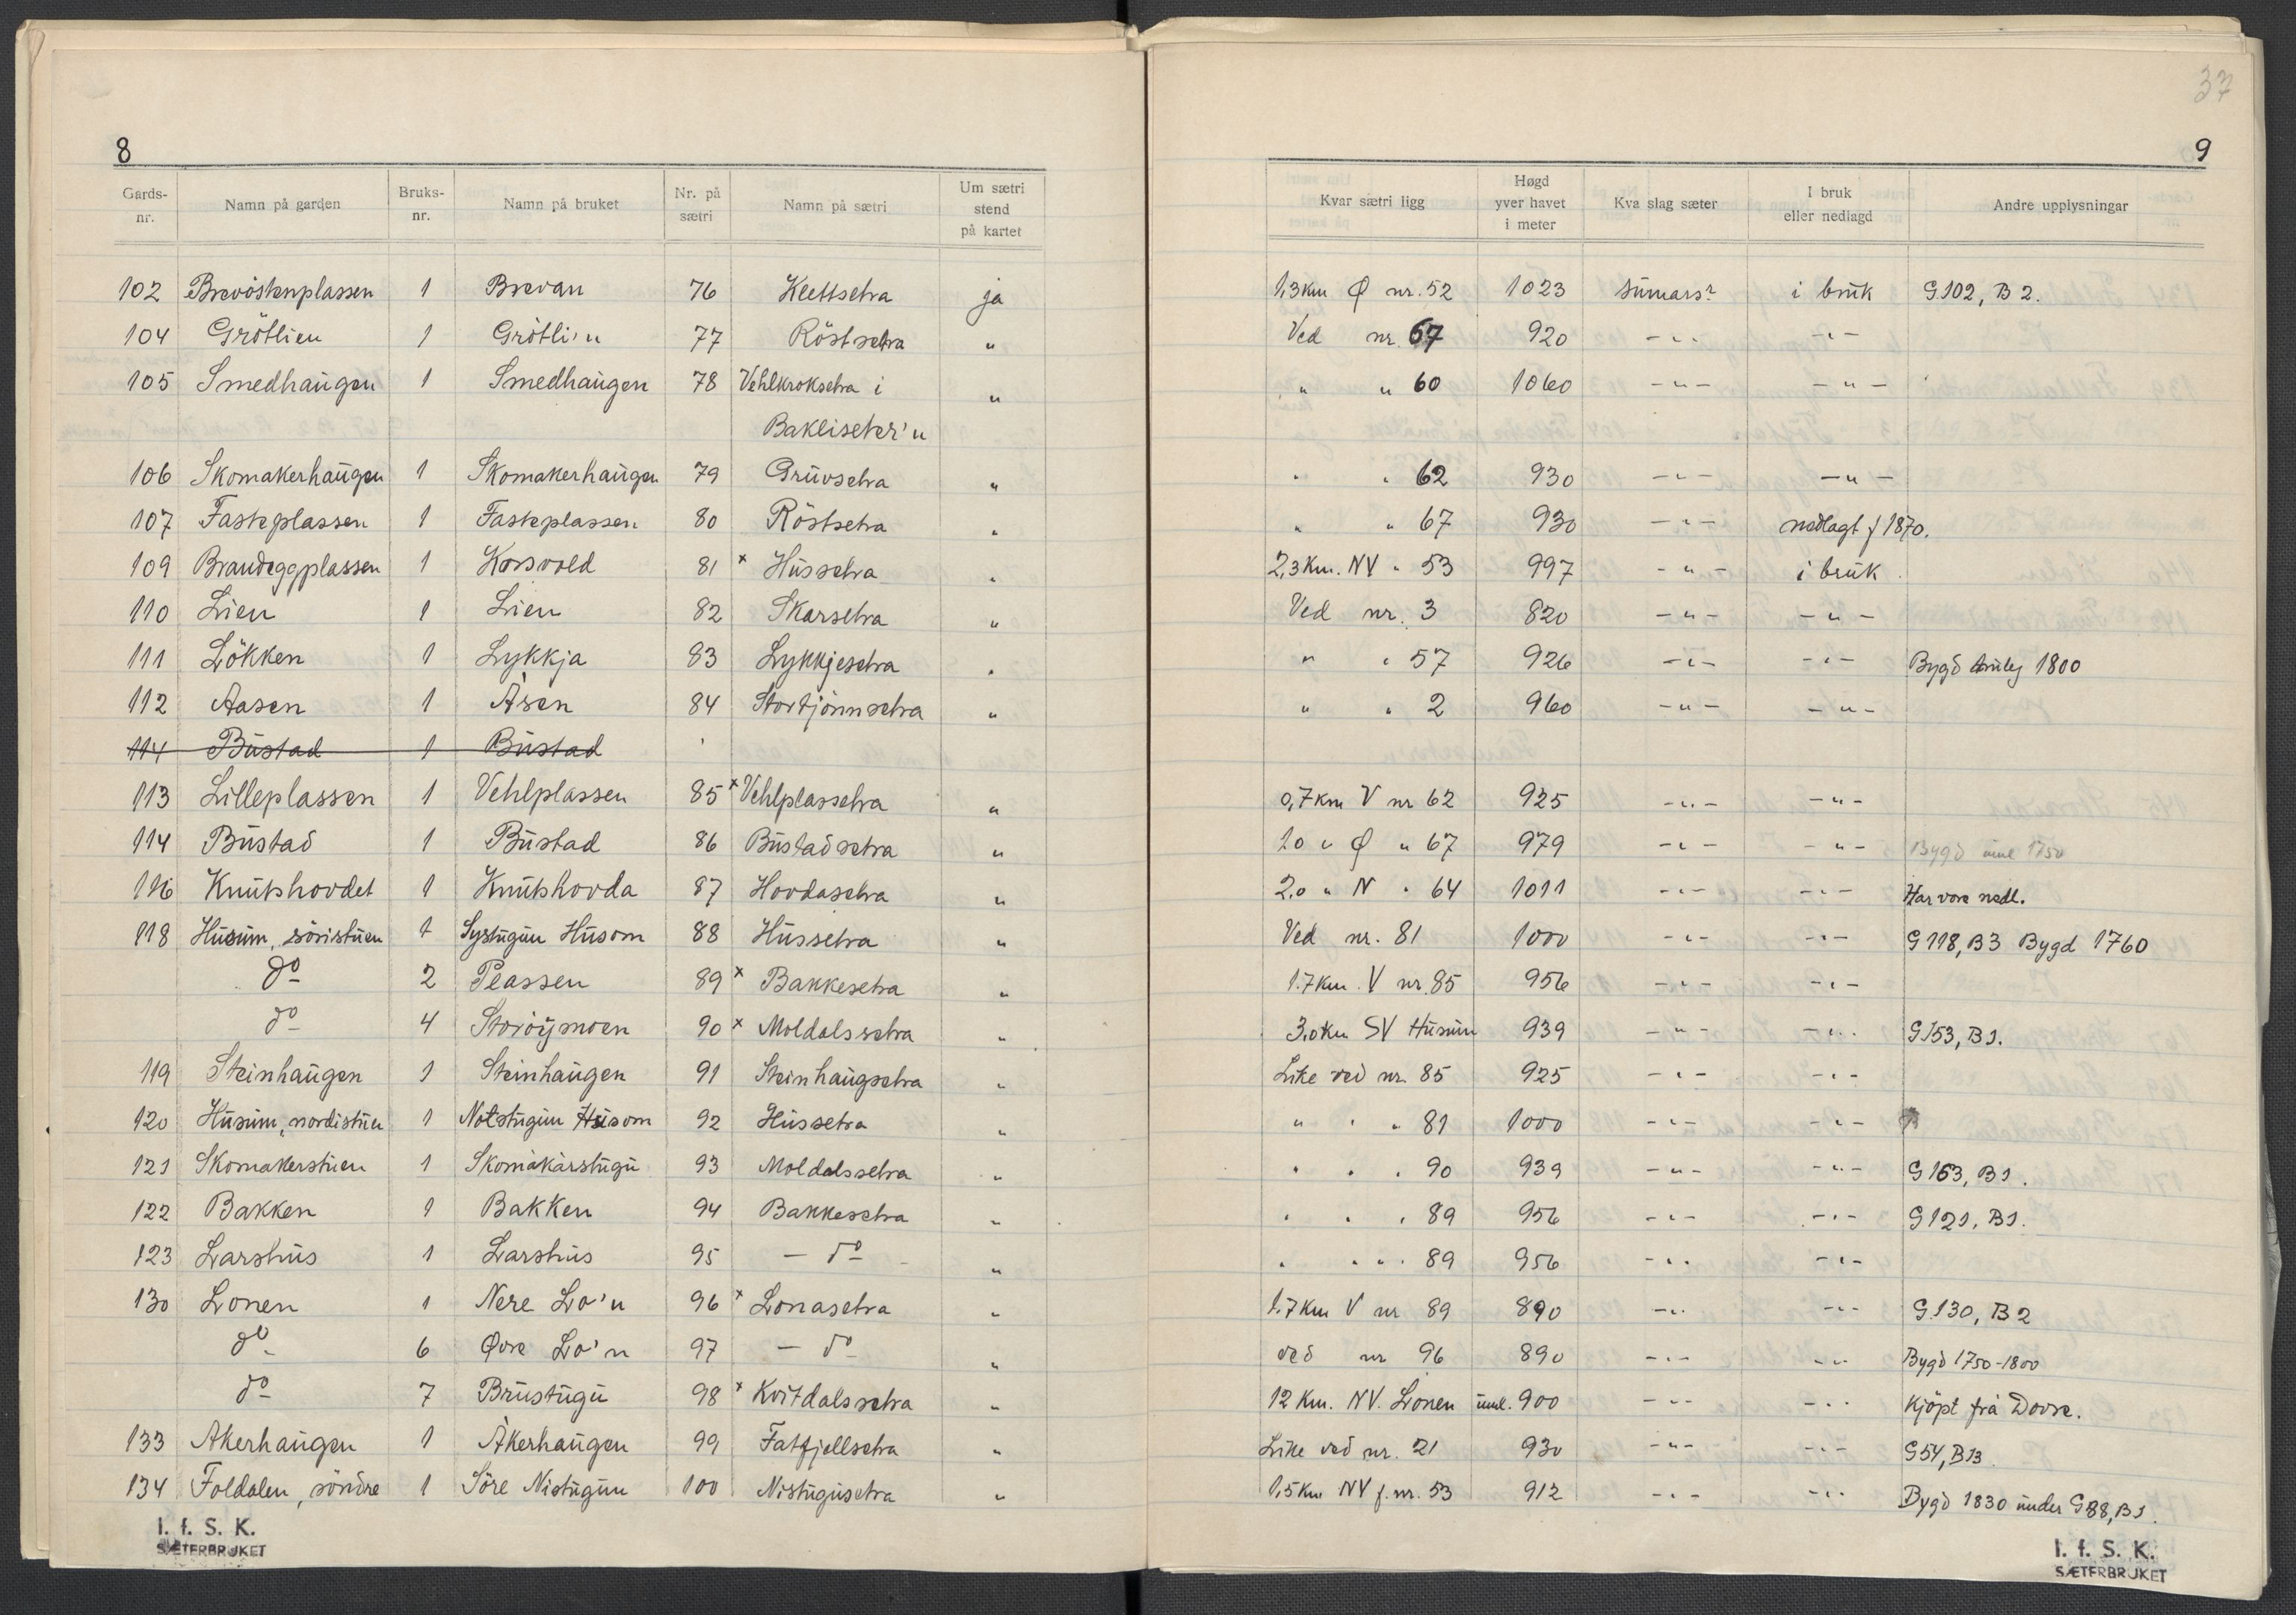 8
Gards-nr. Namn på garden Bruks-nr. Namn på bruket Nr. på sætri Namn på sætri Um sætri stend på kartet
102 Brevöstenplassen 1 Brevan 76 Klettsetra ja
104 Grötlien 1 Grötli'n 77 Röstsetra "
105 Smedhaŭgen 1 Smedhaŭgen 78 Vehlkroksetra i "
Bakliseter'n
106 Skomakerhaŭgen 1 Skomakerhaŭgen 79 Grŭvsetra "
107 Fasteplassen 1 Fasteplassen 80 Röstsetra "
109 Brandeggplassen 1 Korsvold 81 x Hŭssetra "
110 Lien 1 Lien 82 Skarsetra "
111 Lökken 1 Lykkja 83 Lykkjesetra "
112 Aasen 1 Åsen 84 Stortjönnsetra "
114 Bŭstad 1 Bŭstad
113 Lilleplassen 1 Vehlplassen 85 x Vehlplassetra "
114 Bŭstad 1 Bŭstad 86 Bŭstadsetra "
116 Knŭtshovdet 1 Knŭtshovda 87 Hovdasetra "
118 Hŭsŭm, söristŭen 1 Systŭgŭn Hŭsom 88 Hŭssetra "
do 2 Plassen 89 x Bakkesetra "
do 4 Storöymoen 90 x Moldalssetra "
119 Steinhaŭgen 1 Steinhaŭgen 91 Steinhaŭgsetra "
120 Hŭsŭm, nordistŭen 1 Notstŭgŭn Hŭsom 92 Hŭssetra "
121 Skomakerstŭen 1 Skomakarstŭgŭ 93 Moldalssetra "
122 Bakken 1 Bakken 94 Bakkesetra "
123 Larshŭs 1 Larshŭs 95 - do - "
130 Lonen 1 Nere Lo'n 96 x Lonasetra "
do 6 Øvre Lo'n 97 - do "
do 7 Brŭstŭgŭ 98 x Kvitdalssetra "
133 Akerhaŭgen 1 Åkerhaŭgen 99 Fatfjellsetra "
134 Foldalen, söndre 1 Söre Nistŭgŭn 100 Nistŭgŭsetra "
I. f. S. K.
SÆTERBRUKET
37
9
Kvar sætri ligg Høgd yver havet i meter Kva slag sæter I bruk eller nedlagd Andre upplysningar
1,3 km Ø nr. 52 1023 sŭmars? i brŭk G.102, B 2.
Ved nr. 67 920 -"- -"-
" " 60 1060 -"- -"-
" " 62 930 -"- -"-
" " 67 930 -"- nedlagt f 1870.
2,3 km. NV " 53 997 -"- i brŭk
Ved nr. 3 820 -"- -"-
" " 57 926 -"- -"- Bygd truleg 1800
" " 2 960 -"- -"-
0,7 km V nr 62 925 -"- -"-
1.0 " Ø " 67 979 -"- -"- Bygd ŭml 1750
2.0 " N " 64 1011 -"- -"- Har vore nedl.
Ved nr. 81 1000 -"- -"- G 118, B3 Bygd 1760
1.7 km. V nr. 85 956 -"- -"-
3.0 km SV Hŭsŭm 939 -"- -"- G 153, B1.
Like ved nr. 85 925 -"- -"-
" " " 81 1000 -"- -"-
" " " 90 939 -"- -"- G 163, B1.
" " " 89 956 -"- -"- G 121, B1.
" " " 89 956 -"- -"-
1.7 km V nr 89 890 -"- -"- G.130, B 2
ved nr 96 890 -"- -"- Bygd 1750-1800
12 km. NV. Lonen ŭml. 900 -"- -"- Kjöpt frå Dovre.
Like ved nr. 21 930 -"- -"- G 54, B13.
1,5 km NV f. nr. 53 912 -"- -"- Bygd 1830 ŭnder G 88, B1.
I. f. S. K.
SÆTERBRUKET